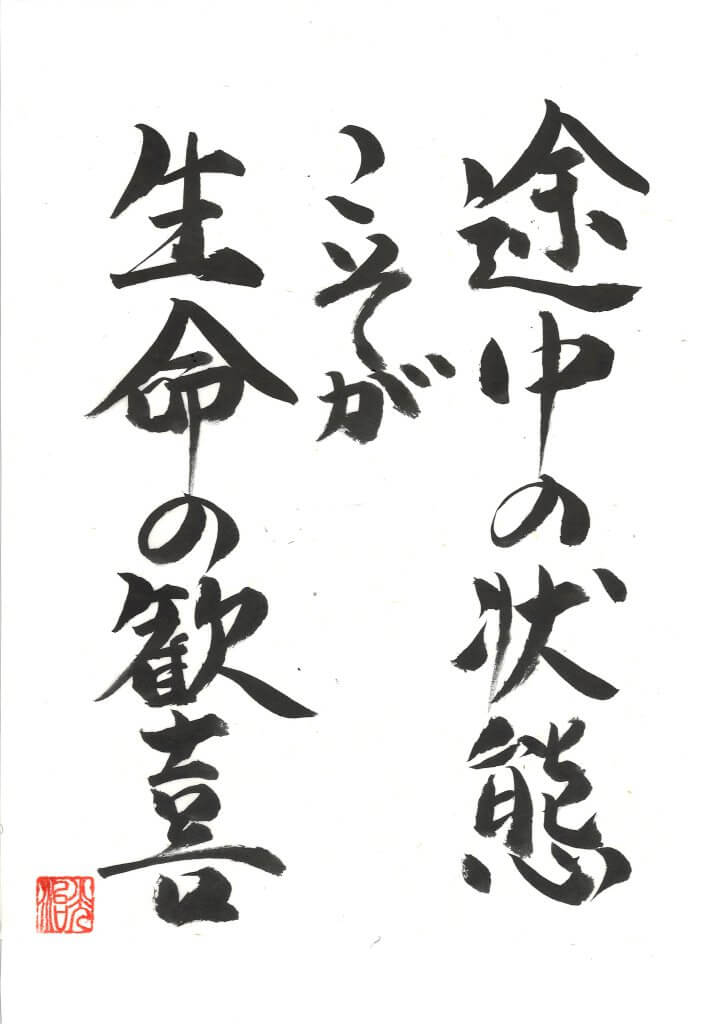 途中の状態
こそが
生命の歓喜